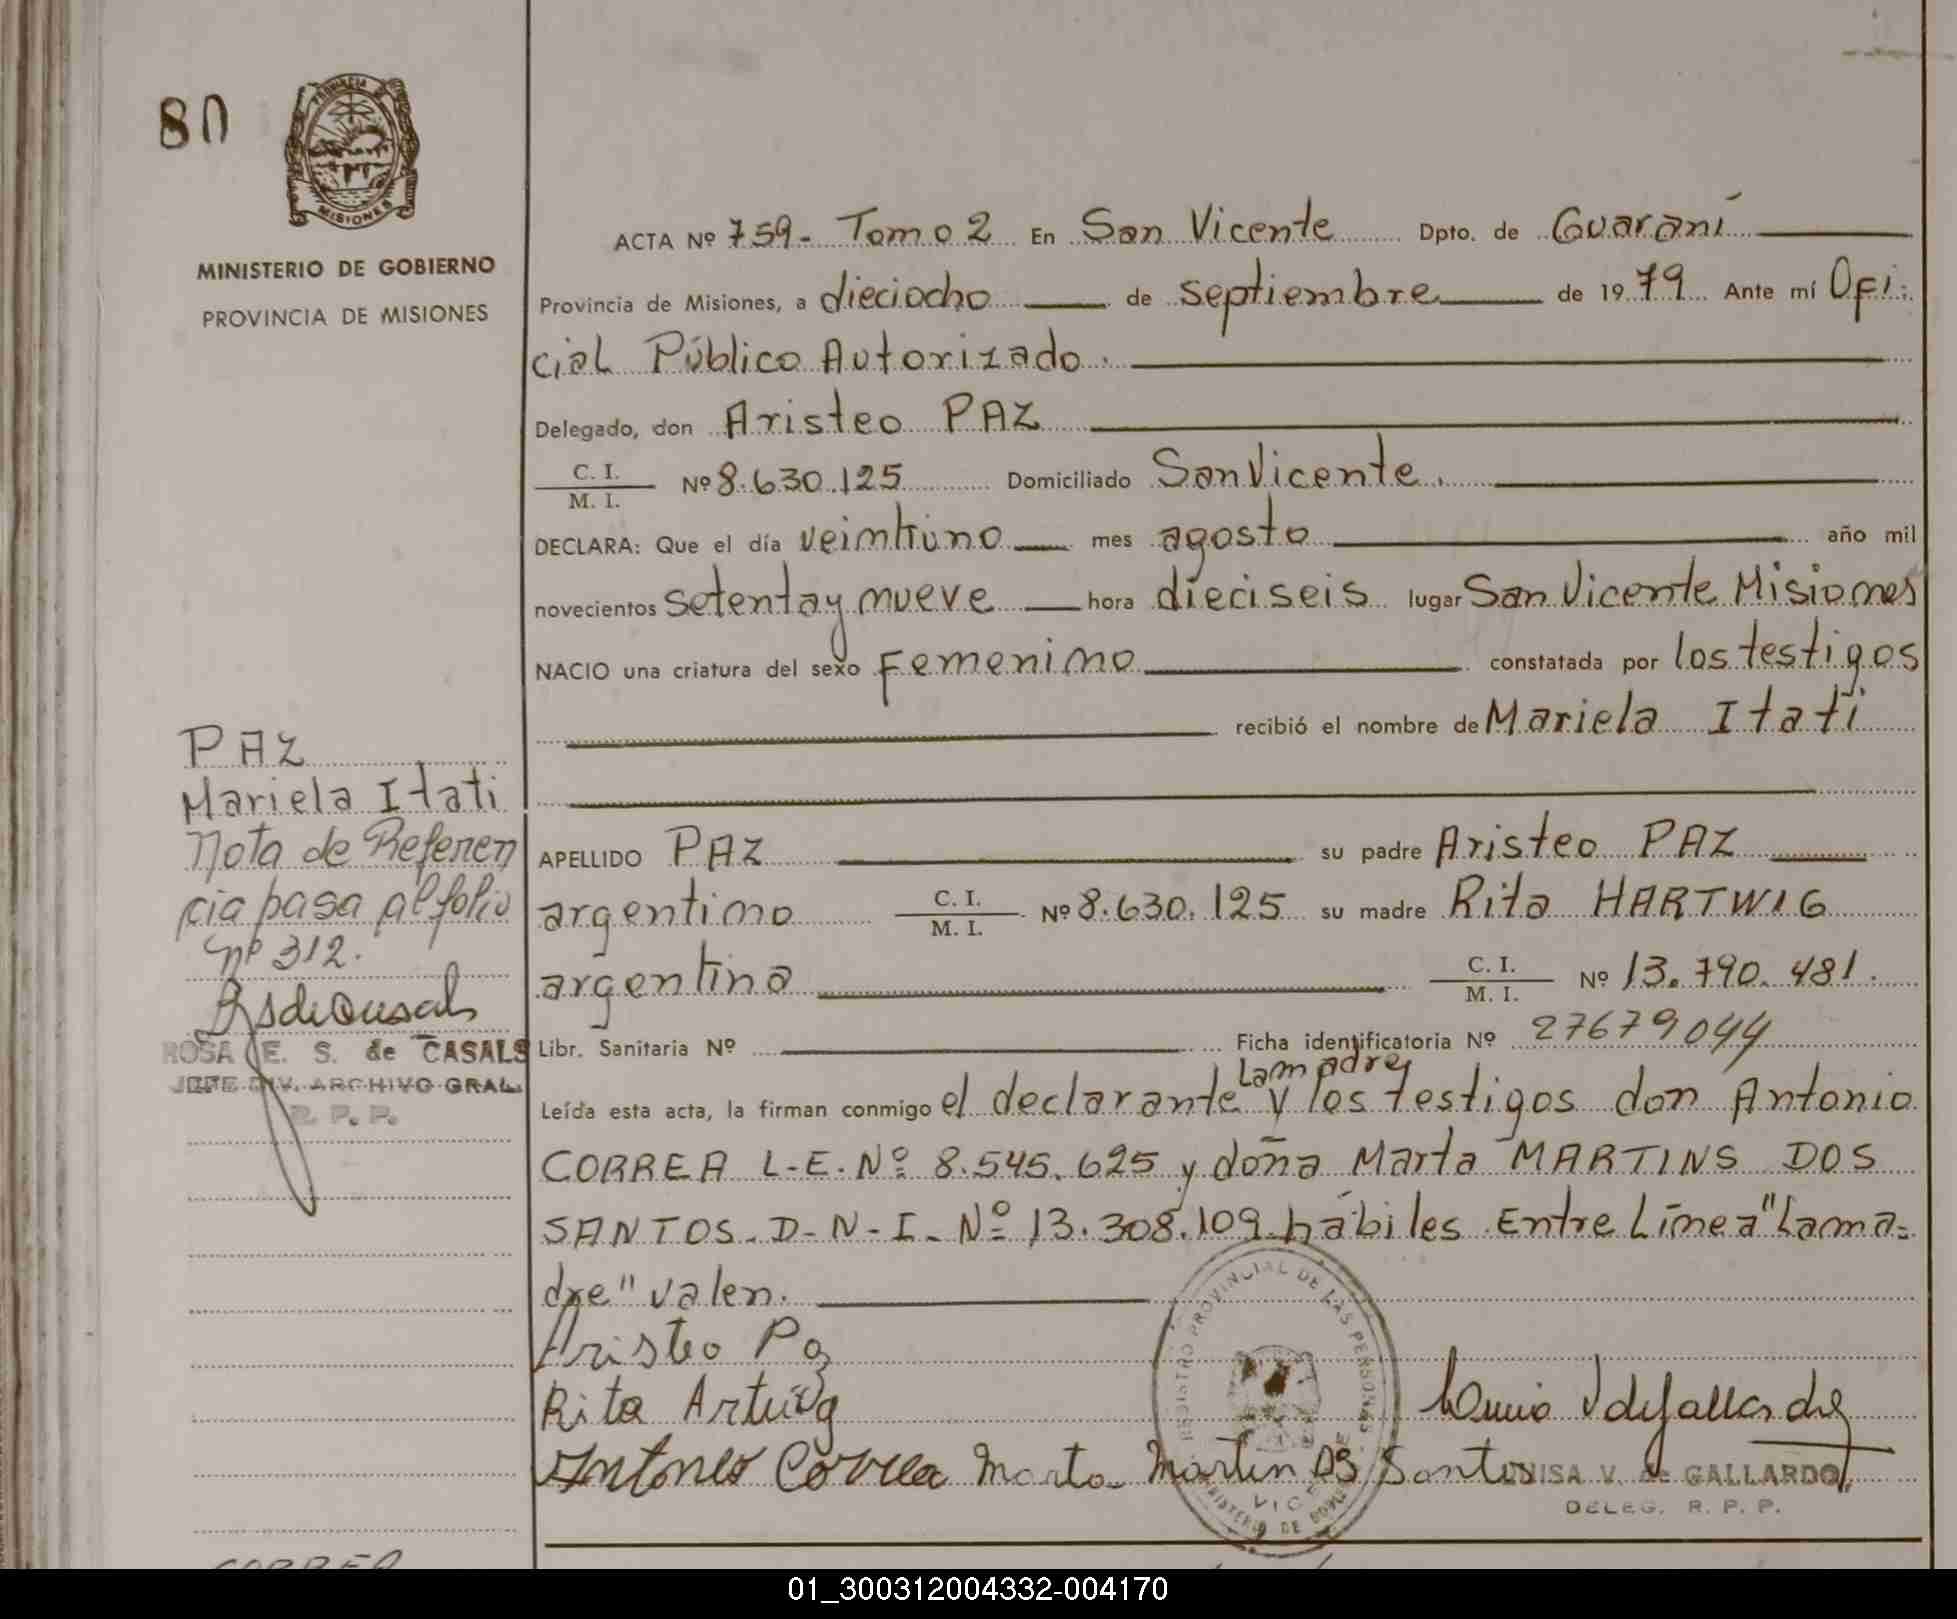 80
PROVINCIA DE
MISIONES
MINISTERIO DE GOBIERNO
PROVINCIA DE MISIONES
ACTA Nº 759- Tomo 2 En San Vicente Dpto. de Guaraní
Provincia de Misiones, a dieciocho de septiembre de 1979 Ante mí Ofi-
cial Público Autorizado.
Delegado, don Aristeo PAZ
C. I.
M. I. Nº 8.630.125 Domiciliado San Vicente.
DECLARA: Que el día veintiuno mes agosto año mil
novecientos setenta y nueve hora dieciseis lugar San Vicente Misiones
NACIO una criatura del sexo Femenino constatada por los testigos
recibió el nombre de Mariela Itatí
PAZ
Mariela Itati
Nota de Referen
cia pasa al folio
nº 312.
ROSA E. S. de CASALS
JEFE DIV. ARCHIVO GRAL.
R. P. P.
APELLIDO PAZ su padre Aristeo PAZ
argentino C. I.
M. I. Nº 8.630.125 su madre Rita HARTWIG
argentina C. I.
M. I. Nº 13.790.481.
Libr. Sanitaria Nº Ficha identificatoria Nº 27679044
La madre
Leída esta acta, la firman conmigo el declarante y los testigos don Antonio
CORREA L-E-Nº 8.545.625 y doña Marta MARTINS DOS
SANTOS-D-N-I-Nº 13.308.109 hábiles Entre Línea "La ma-
dre" valen.
Aristeo Paz
Rita Artuig
Antonio Correa Marta Martin Ds Santos
REGISTRO PROVINCIAL DE LAS PERSONAS
MINISTERIO DE GOBIERNO
LUISA V. de GALLARDO
DELEG. R. P. P.
CORREA
01_300312004332-004170